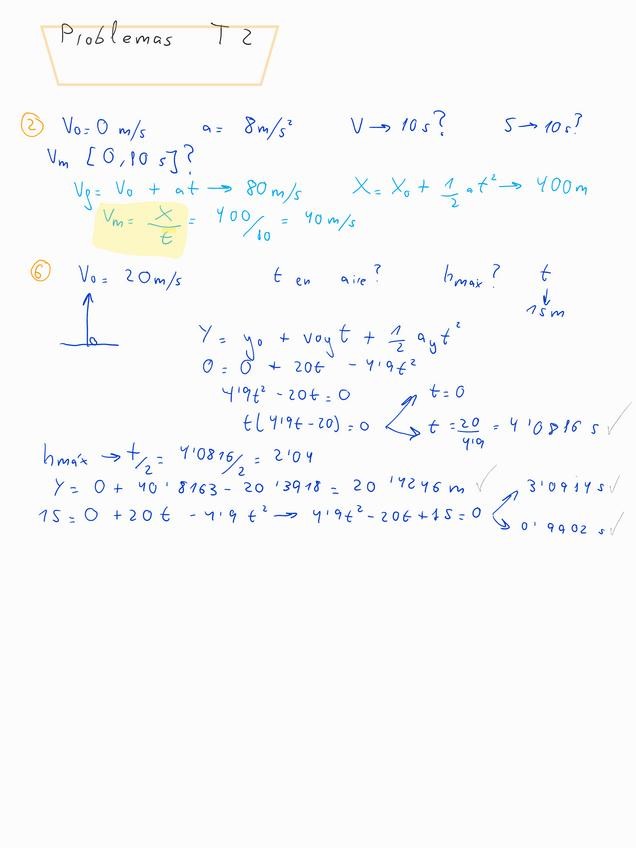 Problemas T2
② V₀ = 0 m/s a = 8 m/s² V → 10 s? S → 10 s?
Vm [0, 10 s]?
Vf = V₀ + at → 80 m/s X = X₀ + 1/2 at² → 400 m
Vm = X/t = 400/10 = 40 m/s
⑥ V₀ = 20 m/s t en aire? hmax? t
↓
15 m
Y = y₀ + voy t + 1/2 ay t²
0 = 0 + 20t - 4'9t²
4'9t² - 20t = 0
t(4'9t - 20) = 0 t = 0
t = 20/4'9 = 4'0816 s ✓
hmáx → t/2 = 4'0816/2 = 2'04
Y = 0 + 40'8163 - 20'3918 = 20'4246 m ✓ 3'0914 s ✓
15 = 0 + 20t - 4'9t² → 4'9t² - 20t + 15 = 0
0'9902 s ✓